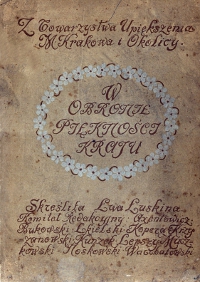 Z Towarzystwa Upiększenia
M. Krakowa i Okolicy.
W
OBRONIE
PIĘKNOŚCI
KRAJU
Skreśliła Ewa Łuskina
Komitet Redakcyjny Axentowicz
Bukowski Ekielski Kopera Krzy-
żanowski Kunzek Lepszy Mycz-
kowski Noskowski Warchałowski